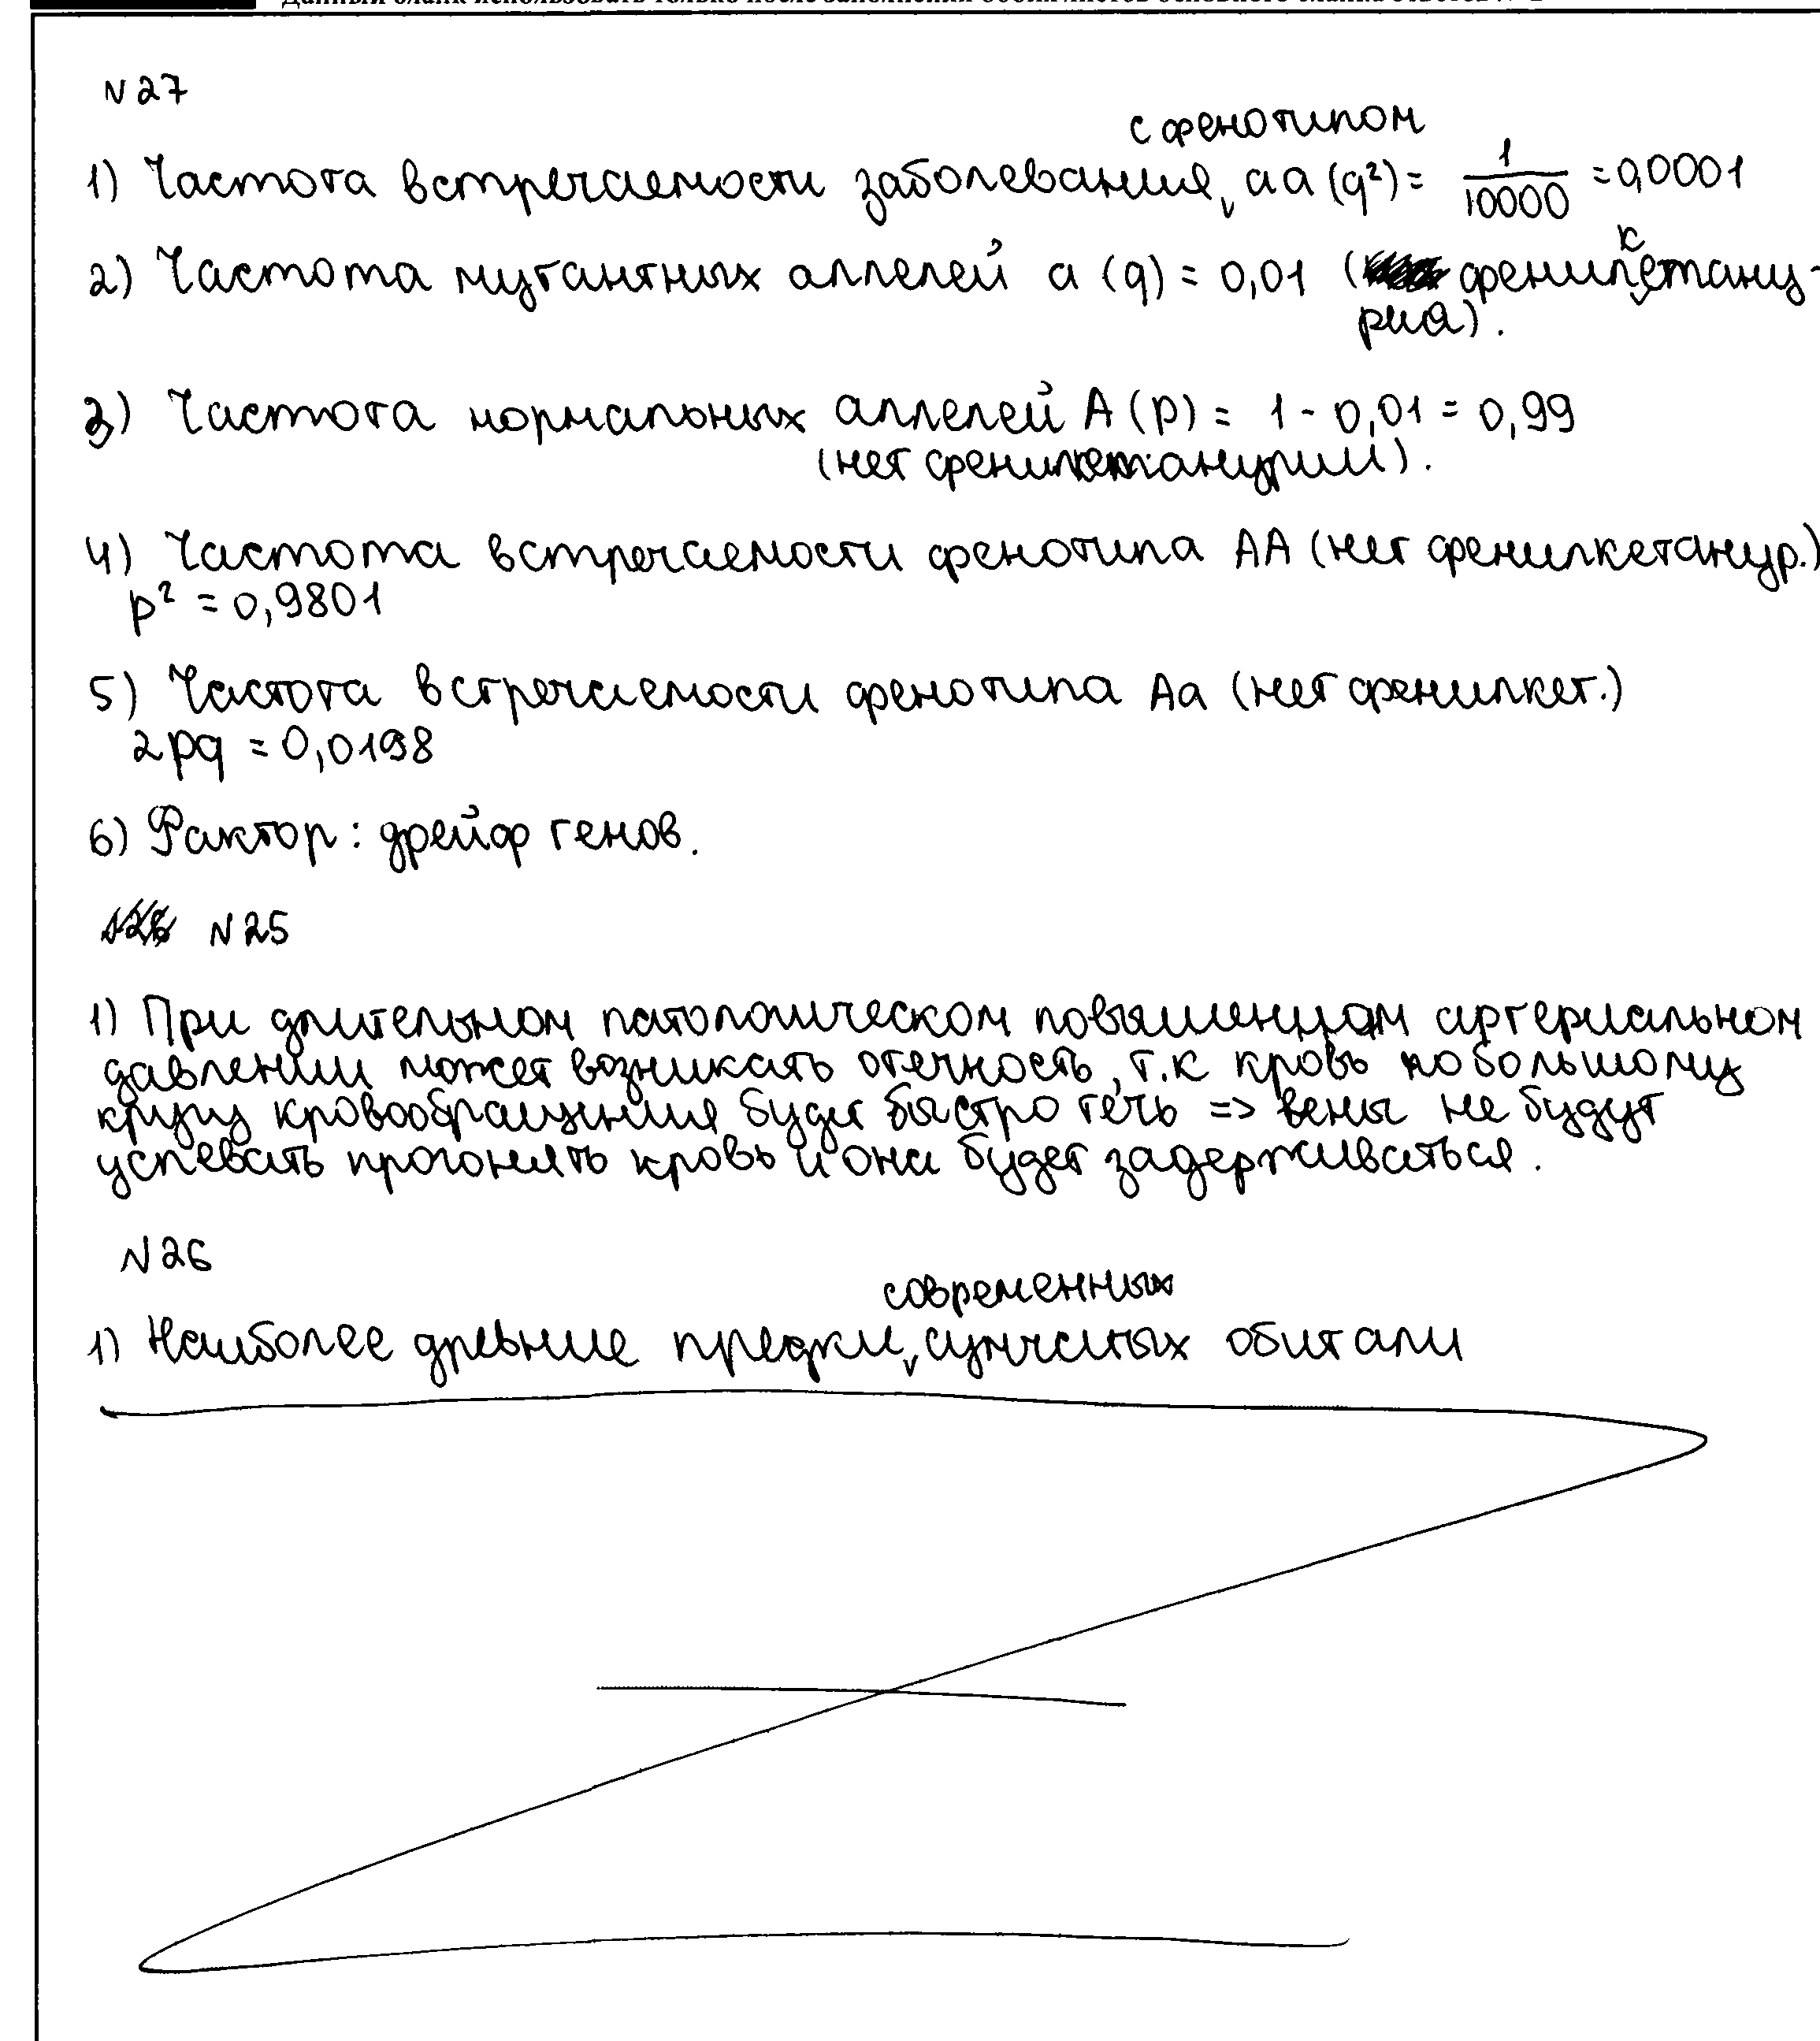 Данный бланк использовать только после заполнения обоих листов основного бланка ответов № 2
№27
1) Частота встречаемости заболевания с фенотипом aa (q²) = 1/10000 = 0,0001
2) Частота мутантных аллелей a (q) = 0,01 (фенилкетану-
рия).
3) Частота нормальных аллелей A (p) = 1 - 0,01 = 0,99
(нет фенилкетанурии).
4) Частота встречаемости фенотипа AA (нет фенилкетанур.)
p² = 0,9801
5) Частота встречаемости фенотипа Aa (нет фенилкет.)
2pq = 0,0198
6) Фактор: дрейф генов.
№25
1) При длительном патологическом повышенном артериальном
давлении может возникать отечность, т.к кровь по большому
кругу кровообращения будет быстро течь => вены не будут
успевать прогонять кровь и она будет задерживаться.
№26
1) Наиболее древние предки современных сумчатых обитали